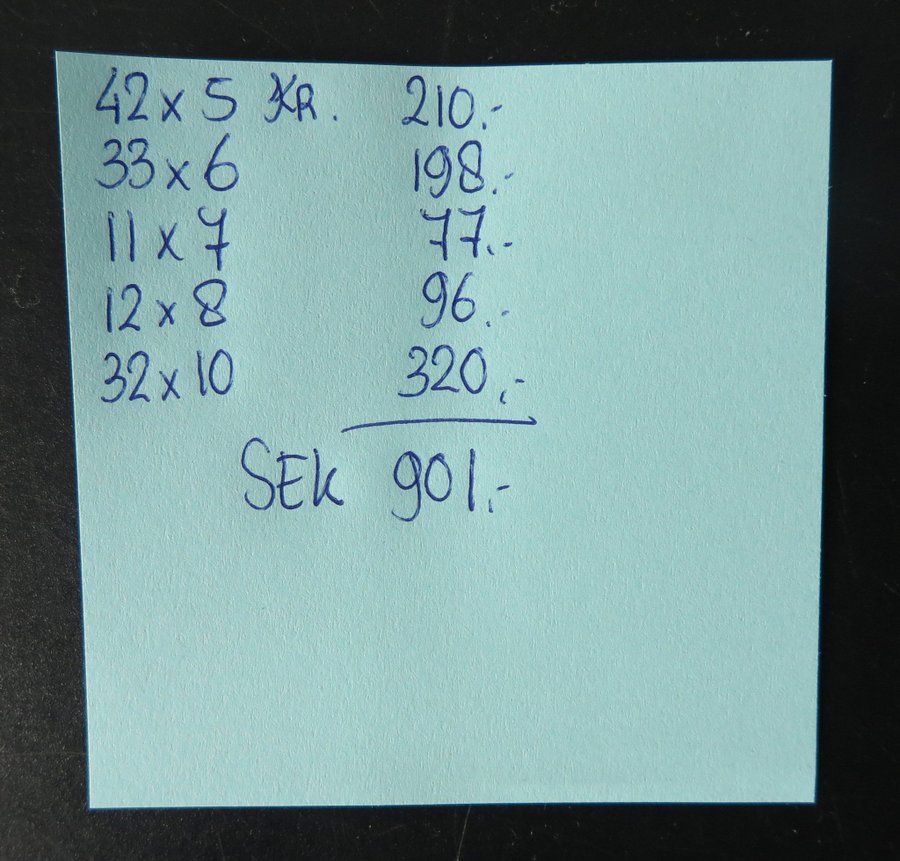 42 x 5 KR. 210.-
33 x 6 198.-
11 x 7 77.-
12 x 8 96.-
32 x 10 320.-
SEK 901.-